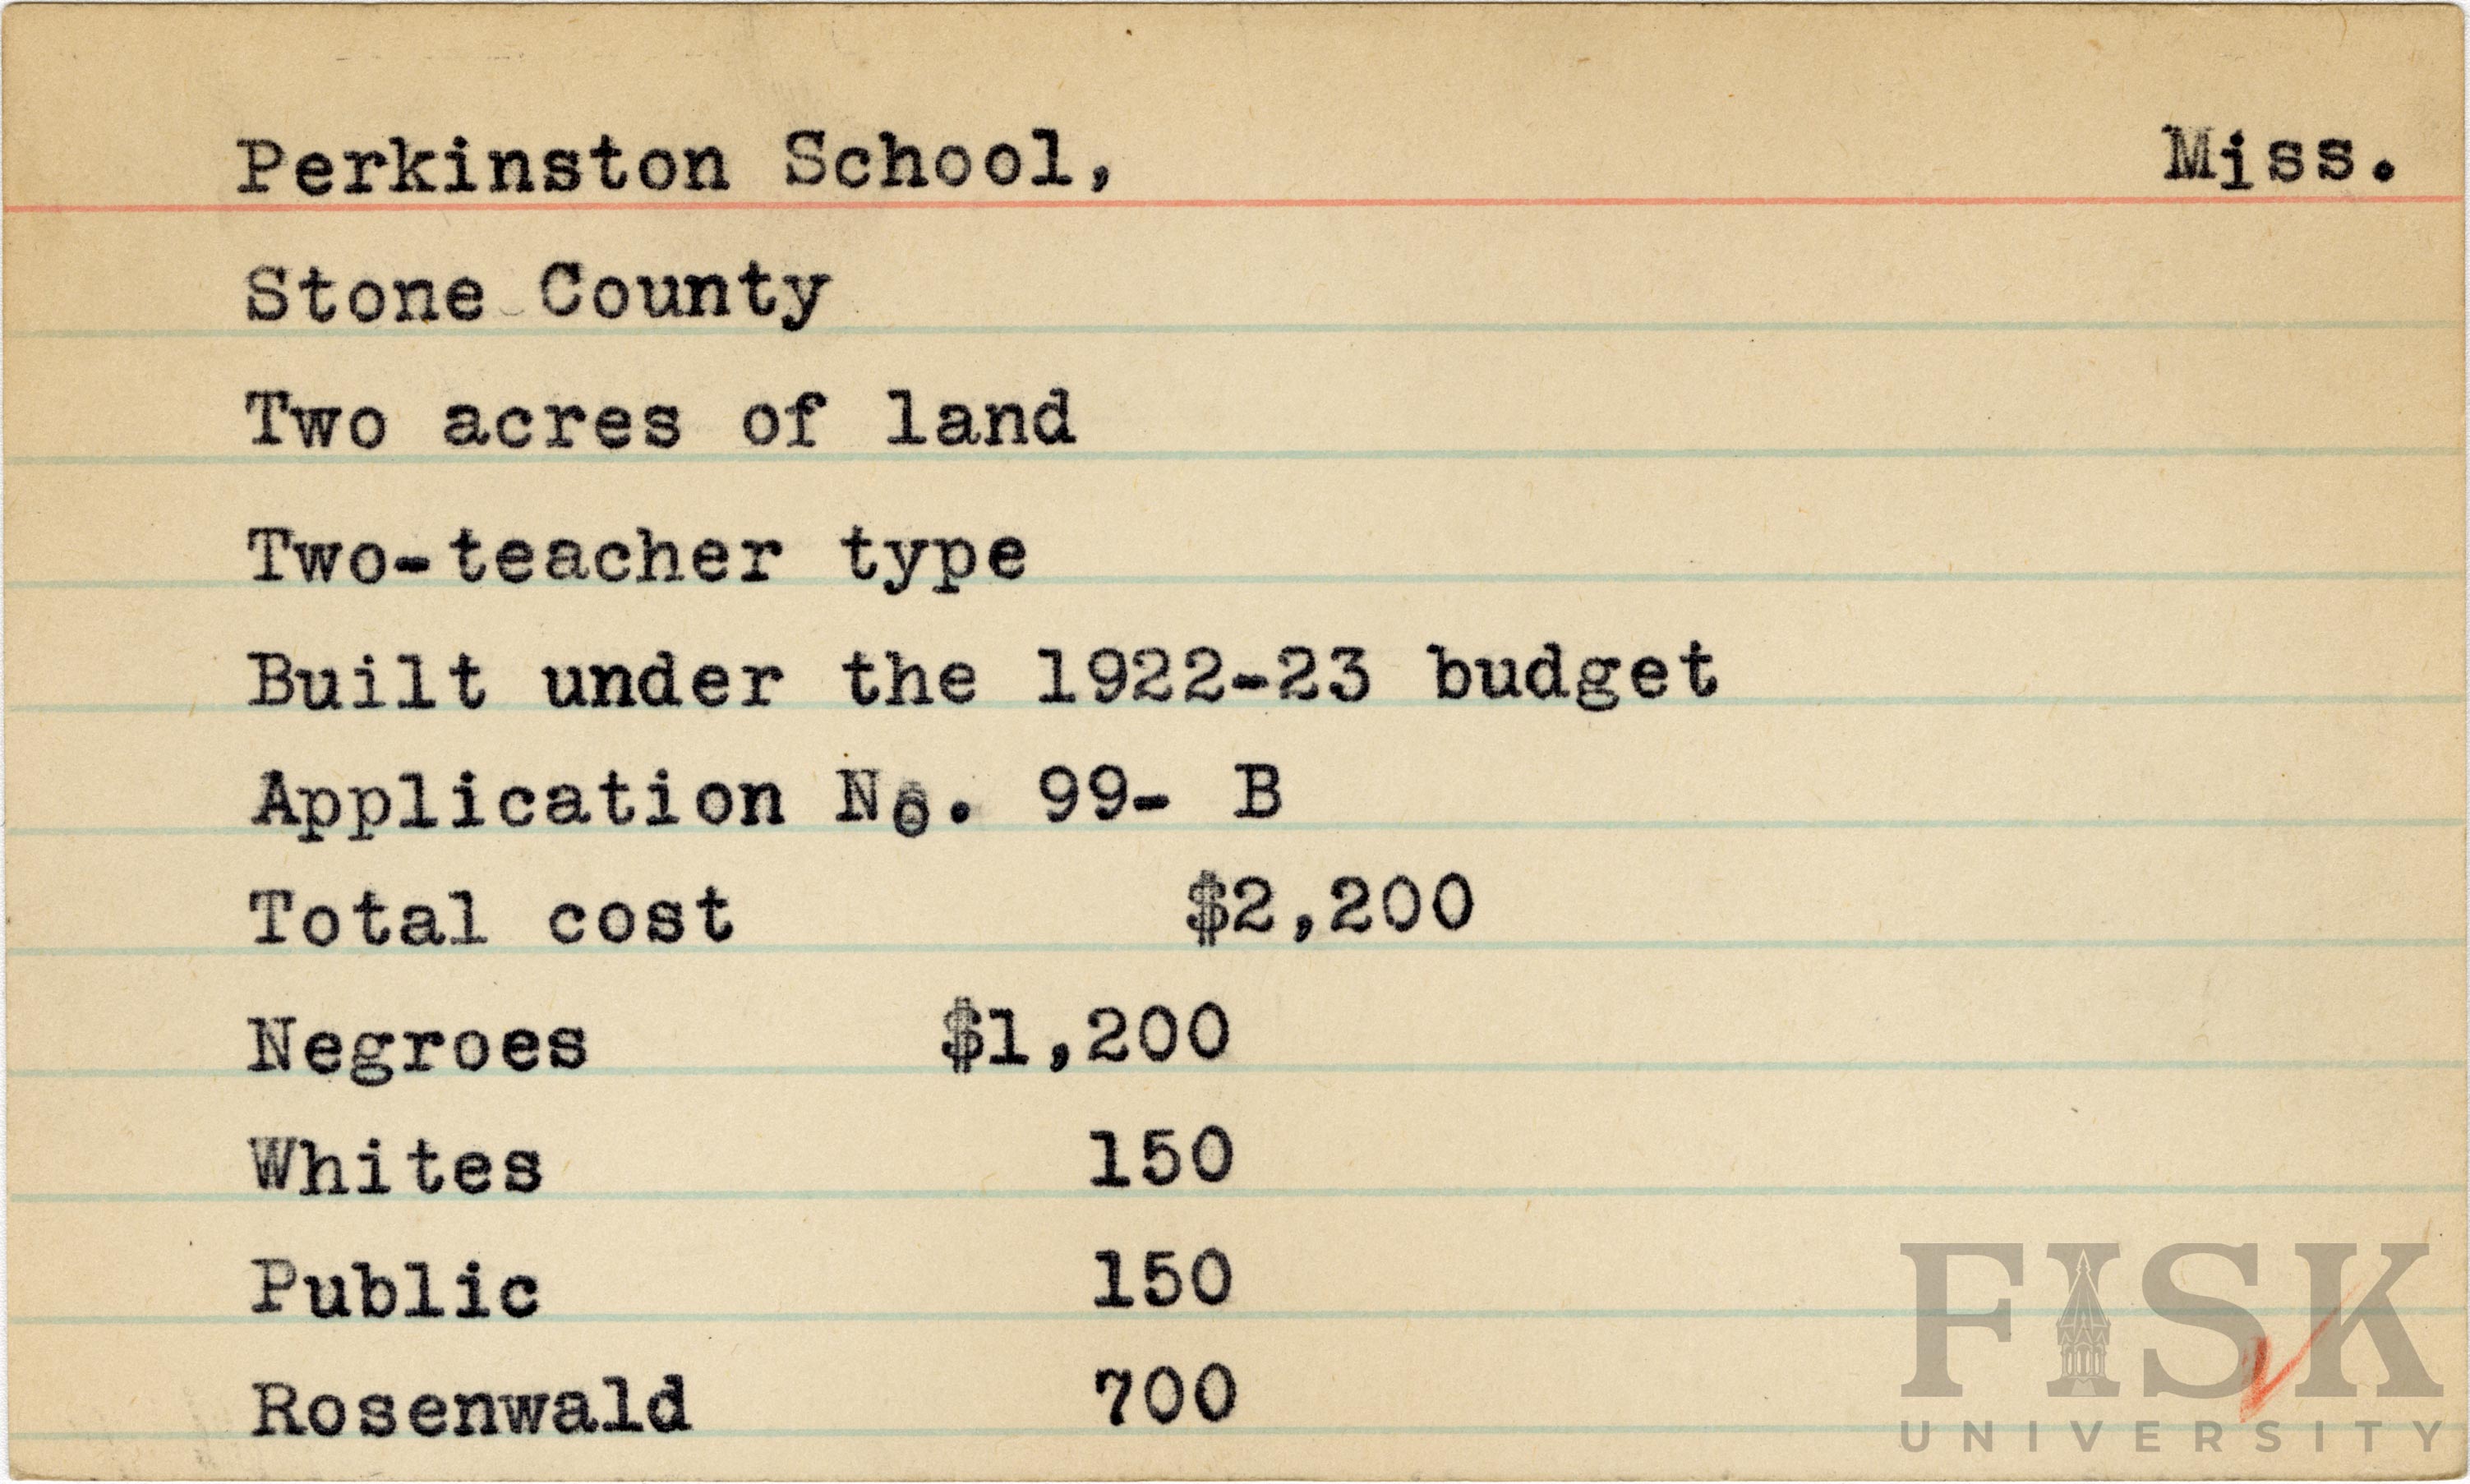 Perkinston School, Miss.
Stone County
Two acres of land
Two-teacher type
Built under the 1922-23 budget
Application No. 99- B
Total cost $2,200
Negroes $1,200
Whites 150
Public 150
Rosenwald 700
FISK
UNIVERSITY